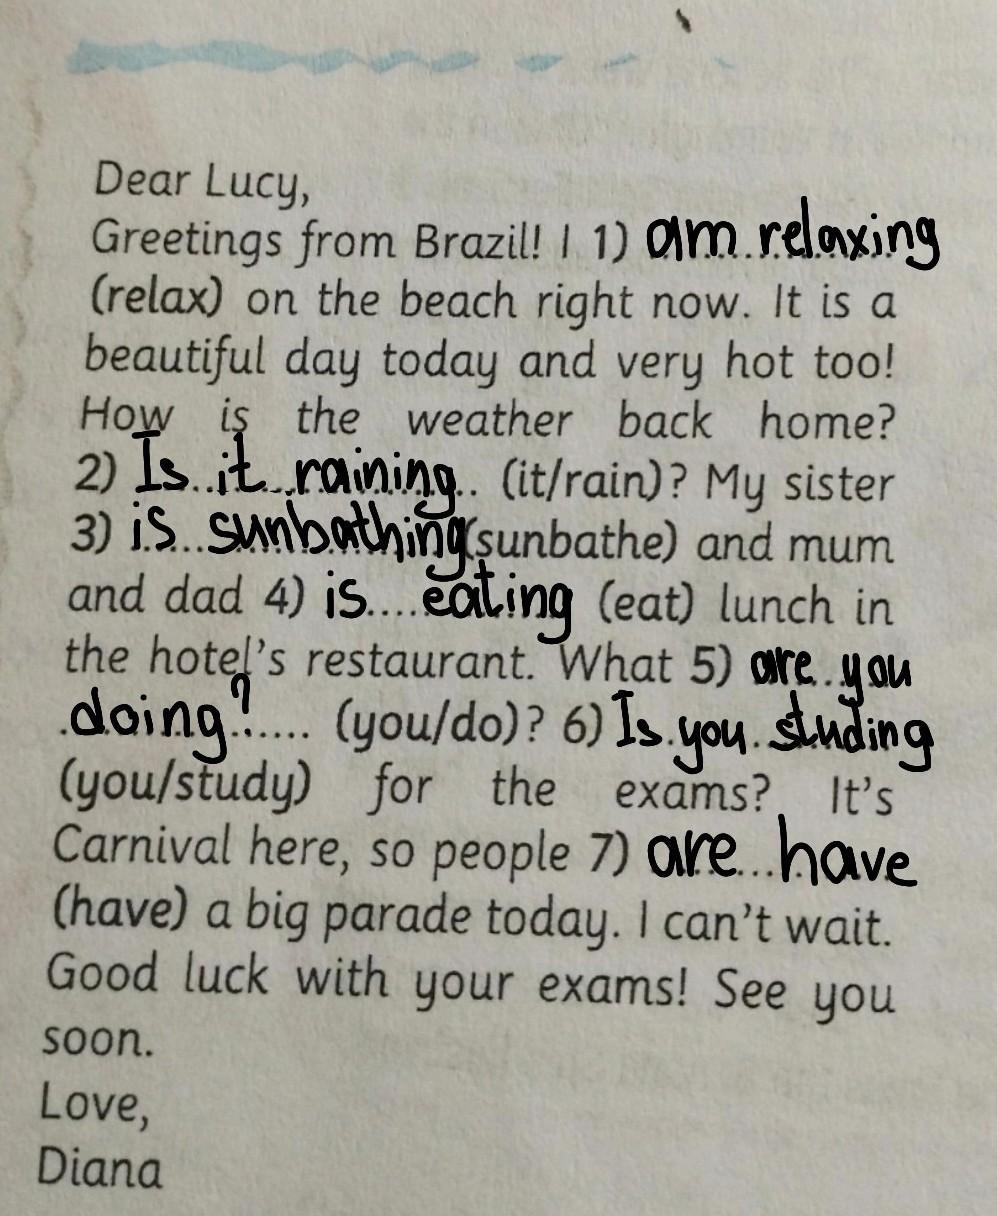 Dear Lucy,
Greetings from Brazil! I 1) am relaxing
(relax) on the beach right now. It is a
beautiful day today and very hot too!
How is the weather back home?
2) Is it raining (it/rain)? My sister
3) is sunbathing (sunbathe) and mum
and dad 4) is eating (eat) lunch in
the hotel's restaurant. What 5) are you
doing? (you/do)? 6) Is you studing
(you/study) for the exams? It's
Carnival here, so people 7) are have
(have) a big parade today. I can't wait.
Good luck with your exams! See you
soon.
Love,
Diana